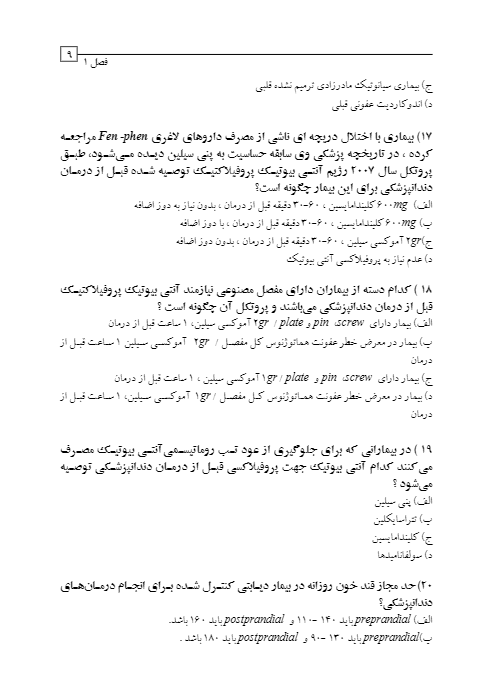 ۹
فصل ۱
ج) بیماری سیانوتیک مادرزادی ترمیم نشده قلبی
د) اندوکاردیت عفونی قبلی
۱۷) بیماری با اختلال دریچه ای ناشی از مصرف داروهای لاغری Fen-phen مراجعه
کرده ، در تاریخچه پزشکی وی سابقه حساسیت به پنی سیلین دیده می‌شود، طبق
پروتکل سال ۲۰۰۷ رژیم آنتی بیوتیک پروفیلاکتیک توصیه شده قبل از درمان
دندانپزشکی برای این بیمار چگونه است؟
الف) ۶۰۰mg کلیندامایسین ، ۶۰-۳۰ دقیقه قبل از درمان ، بدون نیاز به دوز اضافه
ب) ۶۰۰mg کلیندامایسین ، ۶۰-۳۰ دقیقه قبل از درمان ، با دوز اضافه
ج) ۲gr آموکسی سیلین ، ۶۰-۳۰ دقیقه قبل از درمان ، بدون دوز اضافه
د) عدم نیاز به پروفیلاکسی آنتی بیوتیک
۱۸ ) کدام دسته از بیماران دارای مفصل مصنوعی نیازمند آنتی بیوتیک پروفیلاکتیک
قبل از درمان دندانپزشکی می‌باشند و پروتکل آن چگونه است ؟
الف) بیمار دارای pin ،screw و plate / ۲gr آموکسی سیلین، ۱ ساعت قبل از درمان
ب) بیمار در معرض خطر عفونت هماتوژنوس کل مفصل / ۲gr آموکسی سیلین ۱ ساعت قبل از
درمان
ج) بیمار دارای pin ،screw و plate / ۱gr آموکسی سیلین ، ۱ ساعت قبل از درمان
د) بیمار در معرض خطر عفونت هماتوژنوس کل مفصل / ۱gr آموکسی سیلین، ۱ ساعت قبل از
درمان
۱۹ ) در بیمارانی که برای جلوگیری از عود تب روماتیسمی آنتی بیوتیک مصرف
می کنند کدام آنتی بیوتیک جهت پروفیلاکسی قبل از درمان دندانپزشکی توصیه
می‌شود ؟
الف) پنی سیلین
ب) تتراسایکلین
ج) کلیندامایسین
د) سولفانامیدها
۲۰) حد مجاز قند خون روزانه در بیمار دیابتی کنترل شده برای انجام درمان‌های
دندانپزشکی؟
الف) preprandial باید ۱۴۰ -۱۱۰ و postprandial باید ۱۶۰ باشد.
ب) preprandial باید ۱۳۰ -۹۰ و postprandial باید ۱۸۰ باشد .